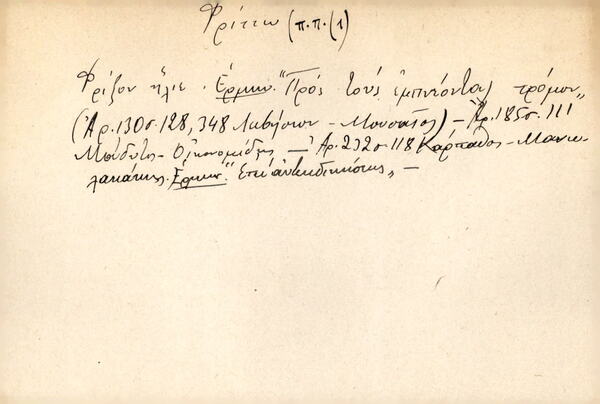 Φρίττω (π.π. (1)
Φρίξον ἥλιε. Ἑρμην. "Πρὸς τοὺς ἐμπνέοντας τρόμον„
(Ἀρ. 130 σ. 128, 348 Λιβήσιον - Μουσαῖος) – Ἀρ. 185 σ. 111
Μάδυτος - Οἰκονομίδης – Ἀρ. 232 σ. 118 Κάρπαθος - Μανω-
λακάκης. Ἑρμην. "Ἐπὶ ἀνεκδικήτου„ –